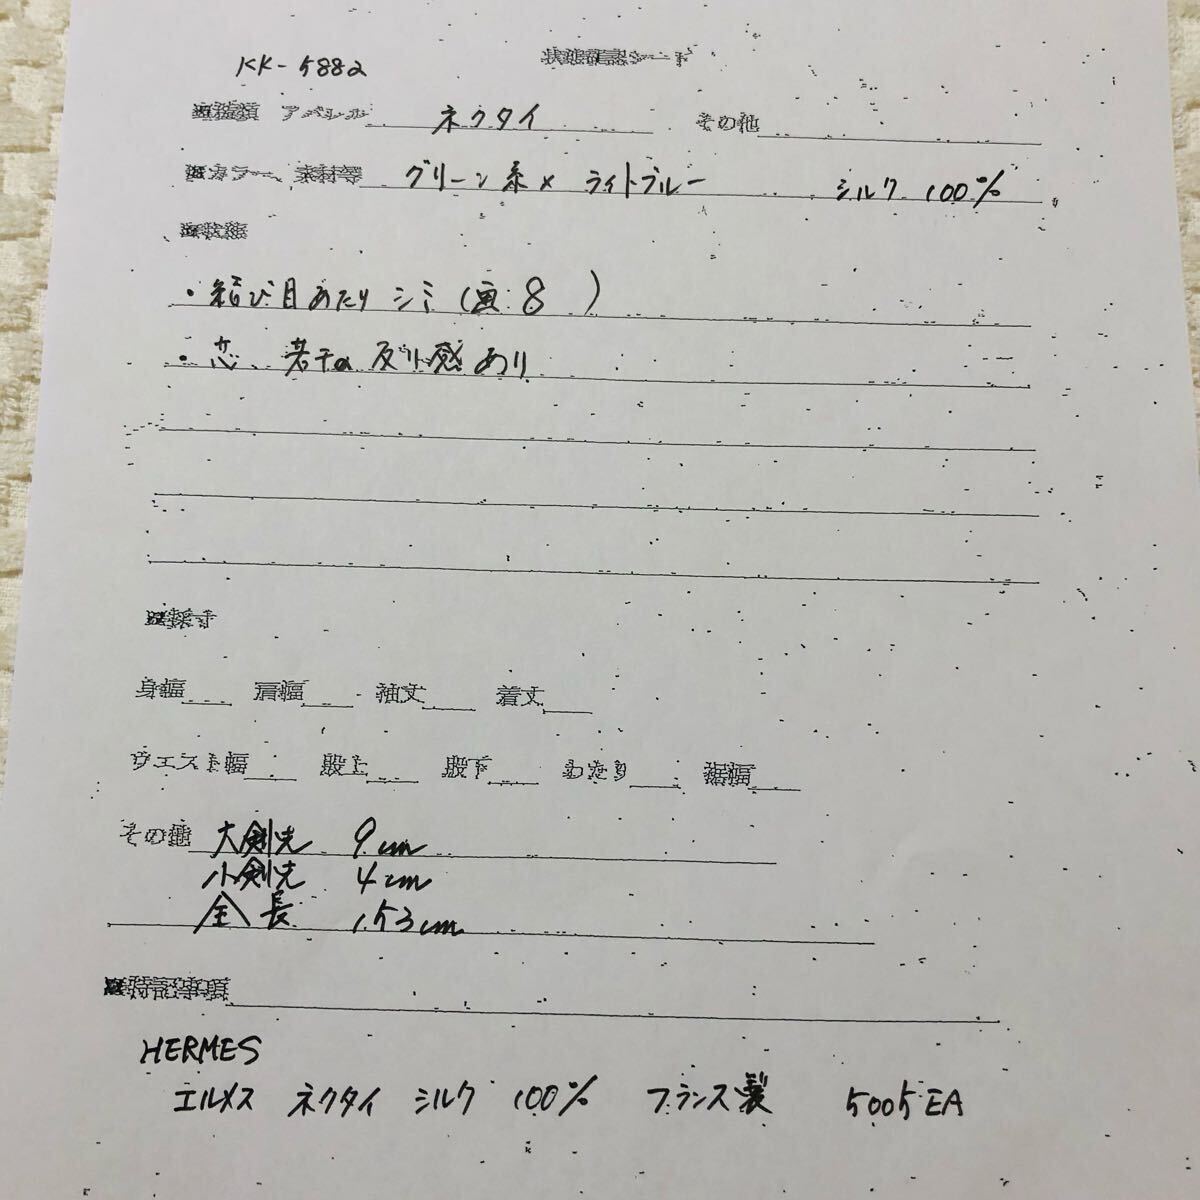 KK-5882
状態確認シート
■種類 アパレル ネクタイ その他
■カラー、素材等 グリーン系× ライトブルー シルク 100%
■状態
・結び目あたり シミ (画:8 )
・芯、若干の反り感あり
■採寸
身幅 肩幅 袖丈 着丈
ウエスト幅 股上 股下 わたり 裾幅
その他 大剣先 9cm
小剣先 4cm
全長 153cm
■特記事項
HERMES
エルメス ネクタイ シルク 100% フランス製 5005EA